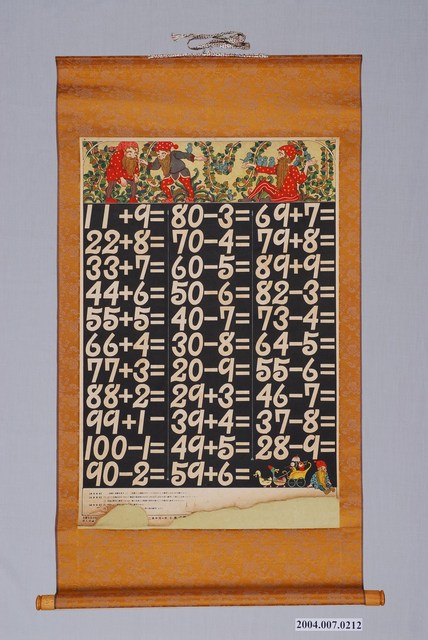 11+9= 80-3= 69+7=
22+8= 70-4= 79+8=
33+7= 60-5= 89+9=
44+6= 50-6= 82-3=
55+5= 40-7= 73-4=
66+4= 30-8= 64-5=
77+3= 20-9= 55-6=
88+2= 29+3= 46-7=
99+1 39+4= 37-8=
100-1= 49+5= 28-9=
90-2= 59+6=
2004.007.0212